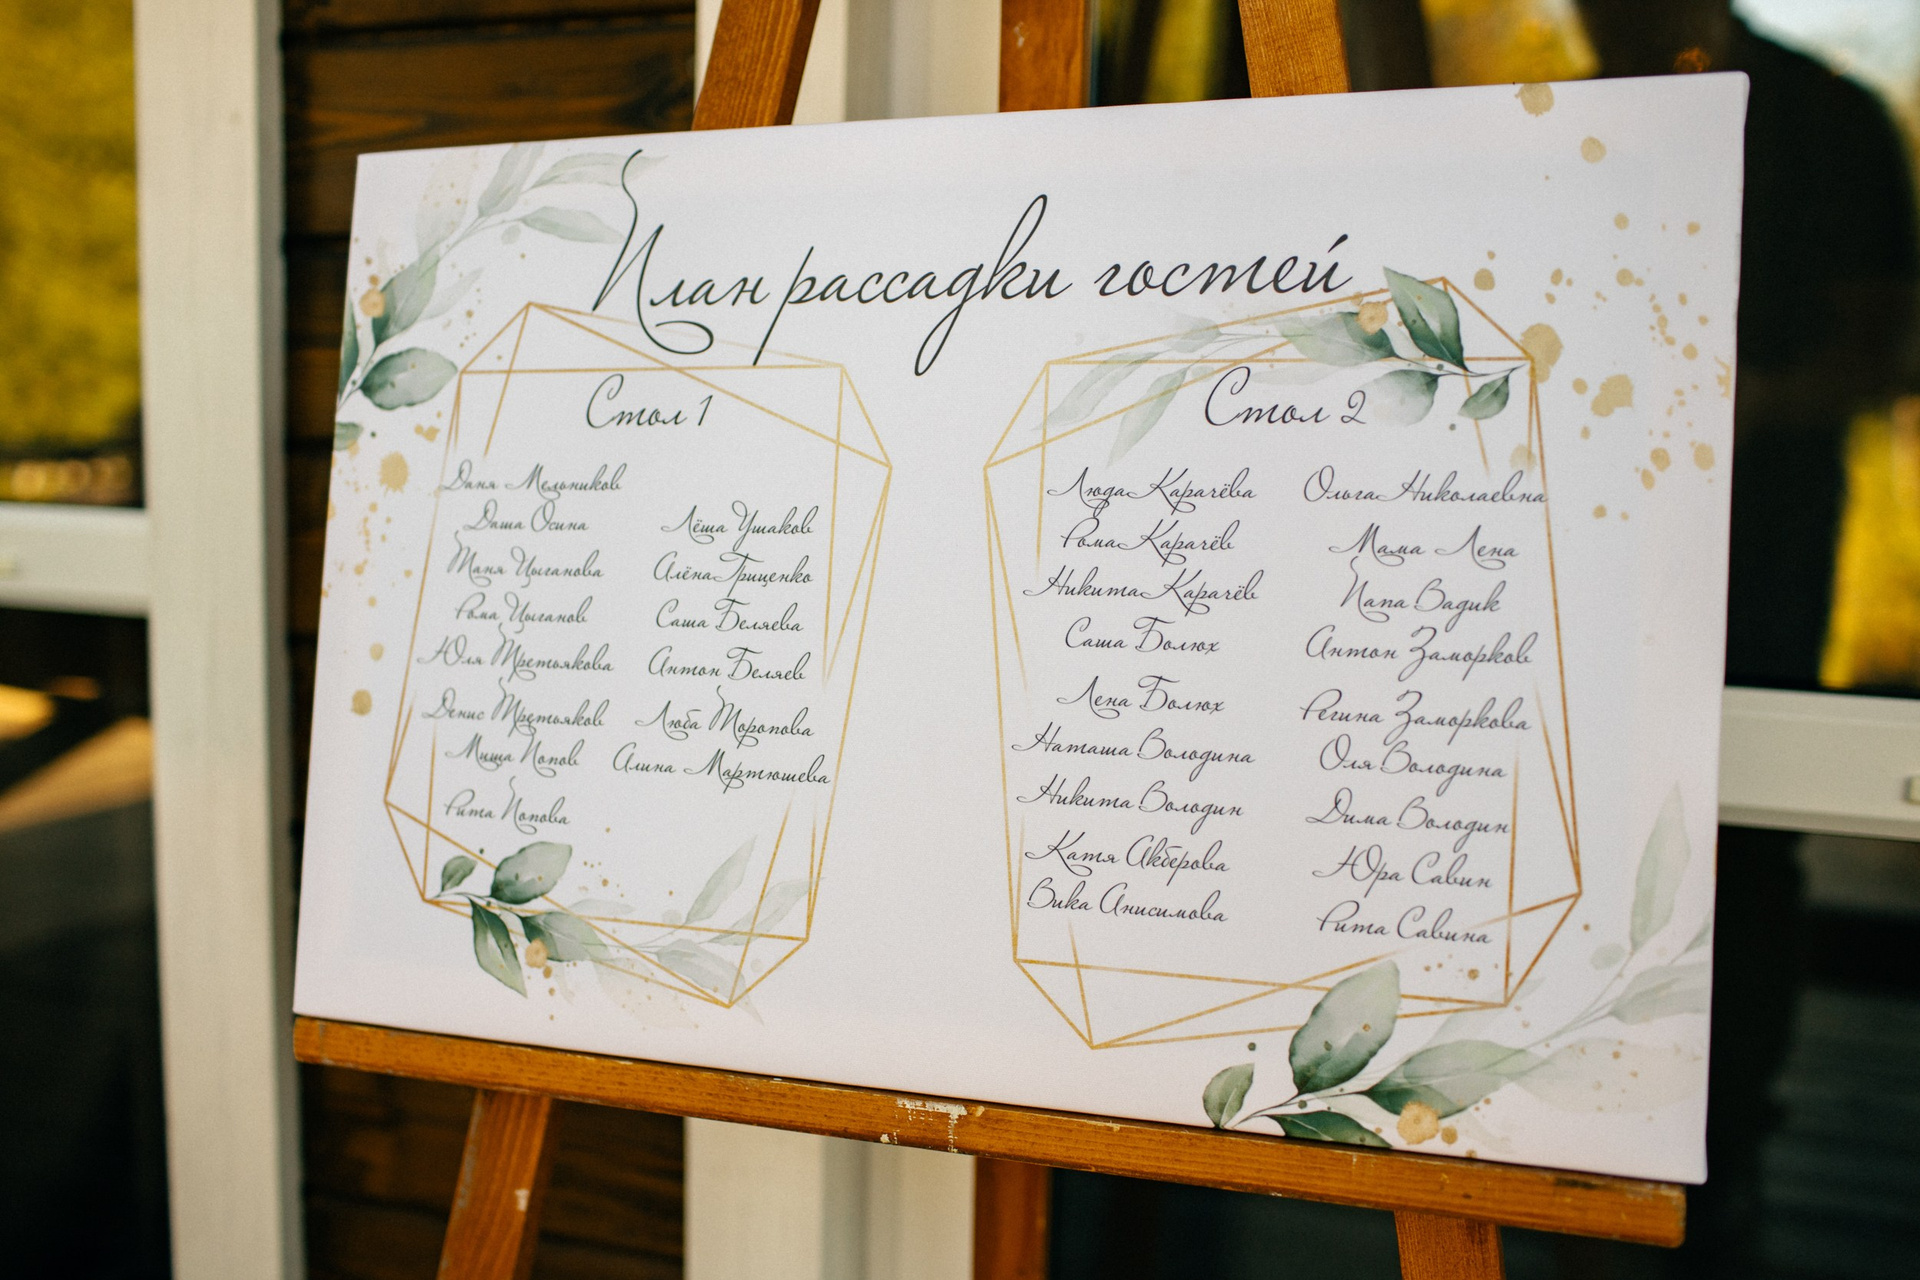 План рассадки гостей
Стол 1
Даня Мельников
Даша Осина
Таня Цыганова
Рома Цыганов
Юля Третьякова
Денис Третьяков
Миша Попов
Рита Попова
Лёша Ушаков
Алёна Гриценко
Саша Беляева
Антон Беляев
Люба Торопова
Алина Мартюшева
Стол 2
Люда Карачёва
Рома Карачёв
Никита Карачёв
Саша Болюх
Лена Болюх
Наташа Володина
Никита Володин
Катя Акберова
Вика Анисимова
Ольга Николаевна
Мама Лена
Папа Вадик
Антон Заморков
Регина Заморкова
Оля Володина
Дима Володин
Юра Савин
Рита Савина